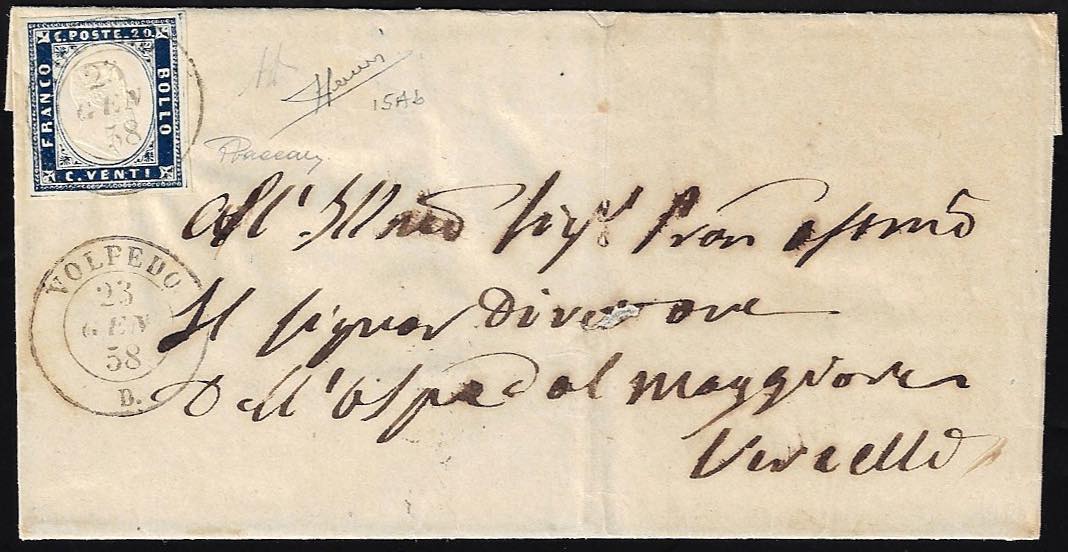 C. POSTE. 20.
FRANCO
BOLLO
C. VENTI
23
GEN
58
15Ab
VOLPEDO
23
GEN
58
D.
All'Illmo Sigr
Il Signor Direttore
Dell'Ospedal Maggiore
Vercelli